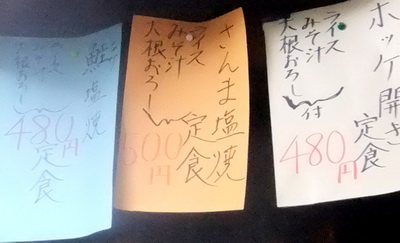 ホッケ開き定食
ライス
みそ汁
大根おろし付
480円
さんま塩焼定食
ライス
みそ汁
大根おろし
500円
鮭塩焼定食
大根おろし
480円